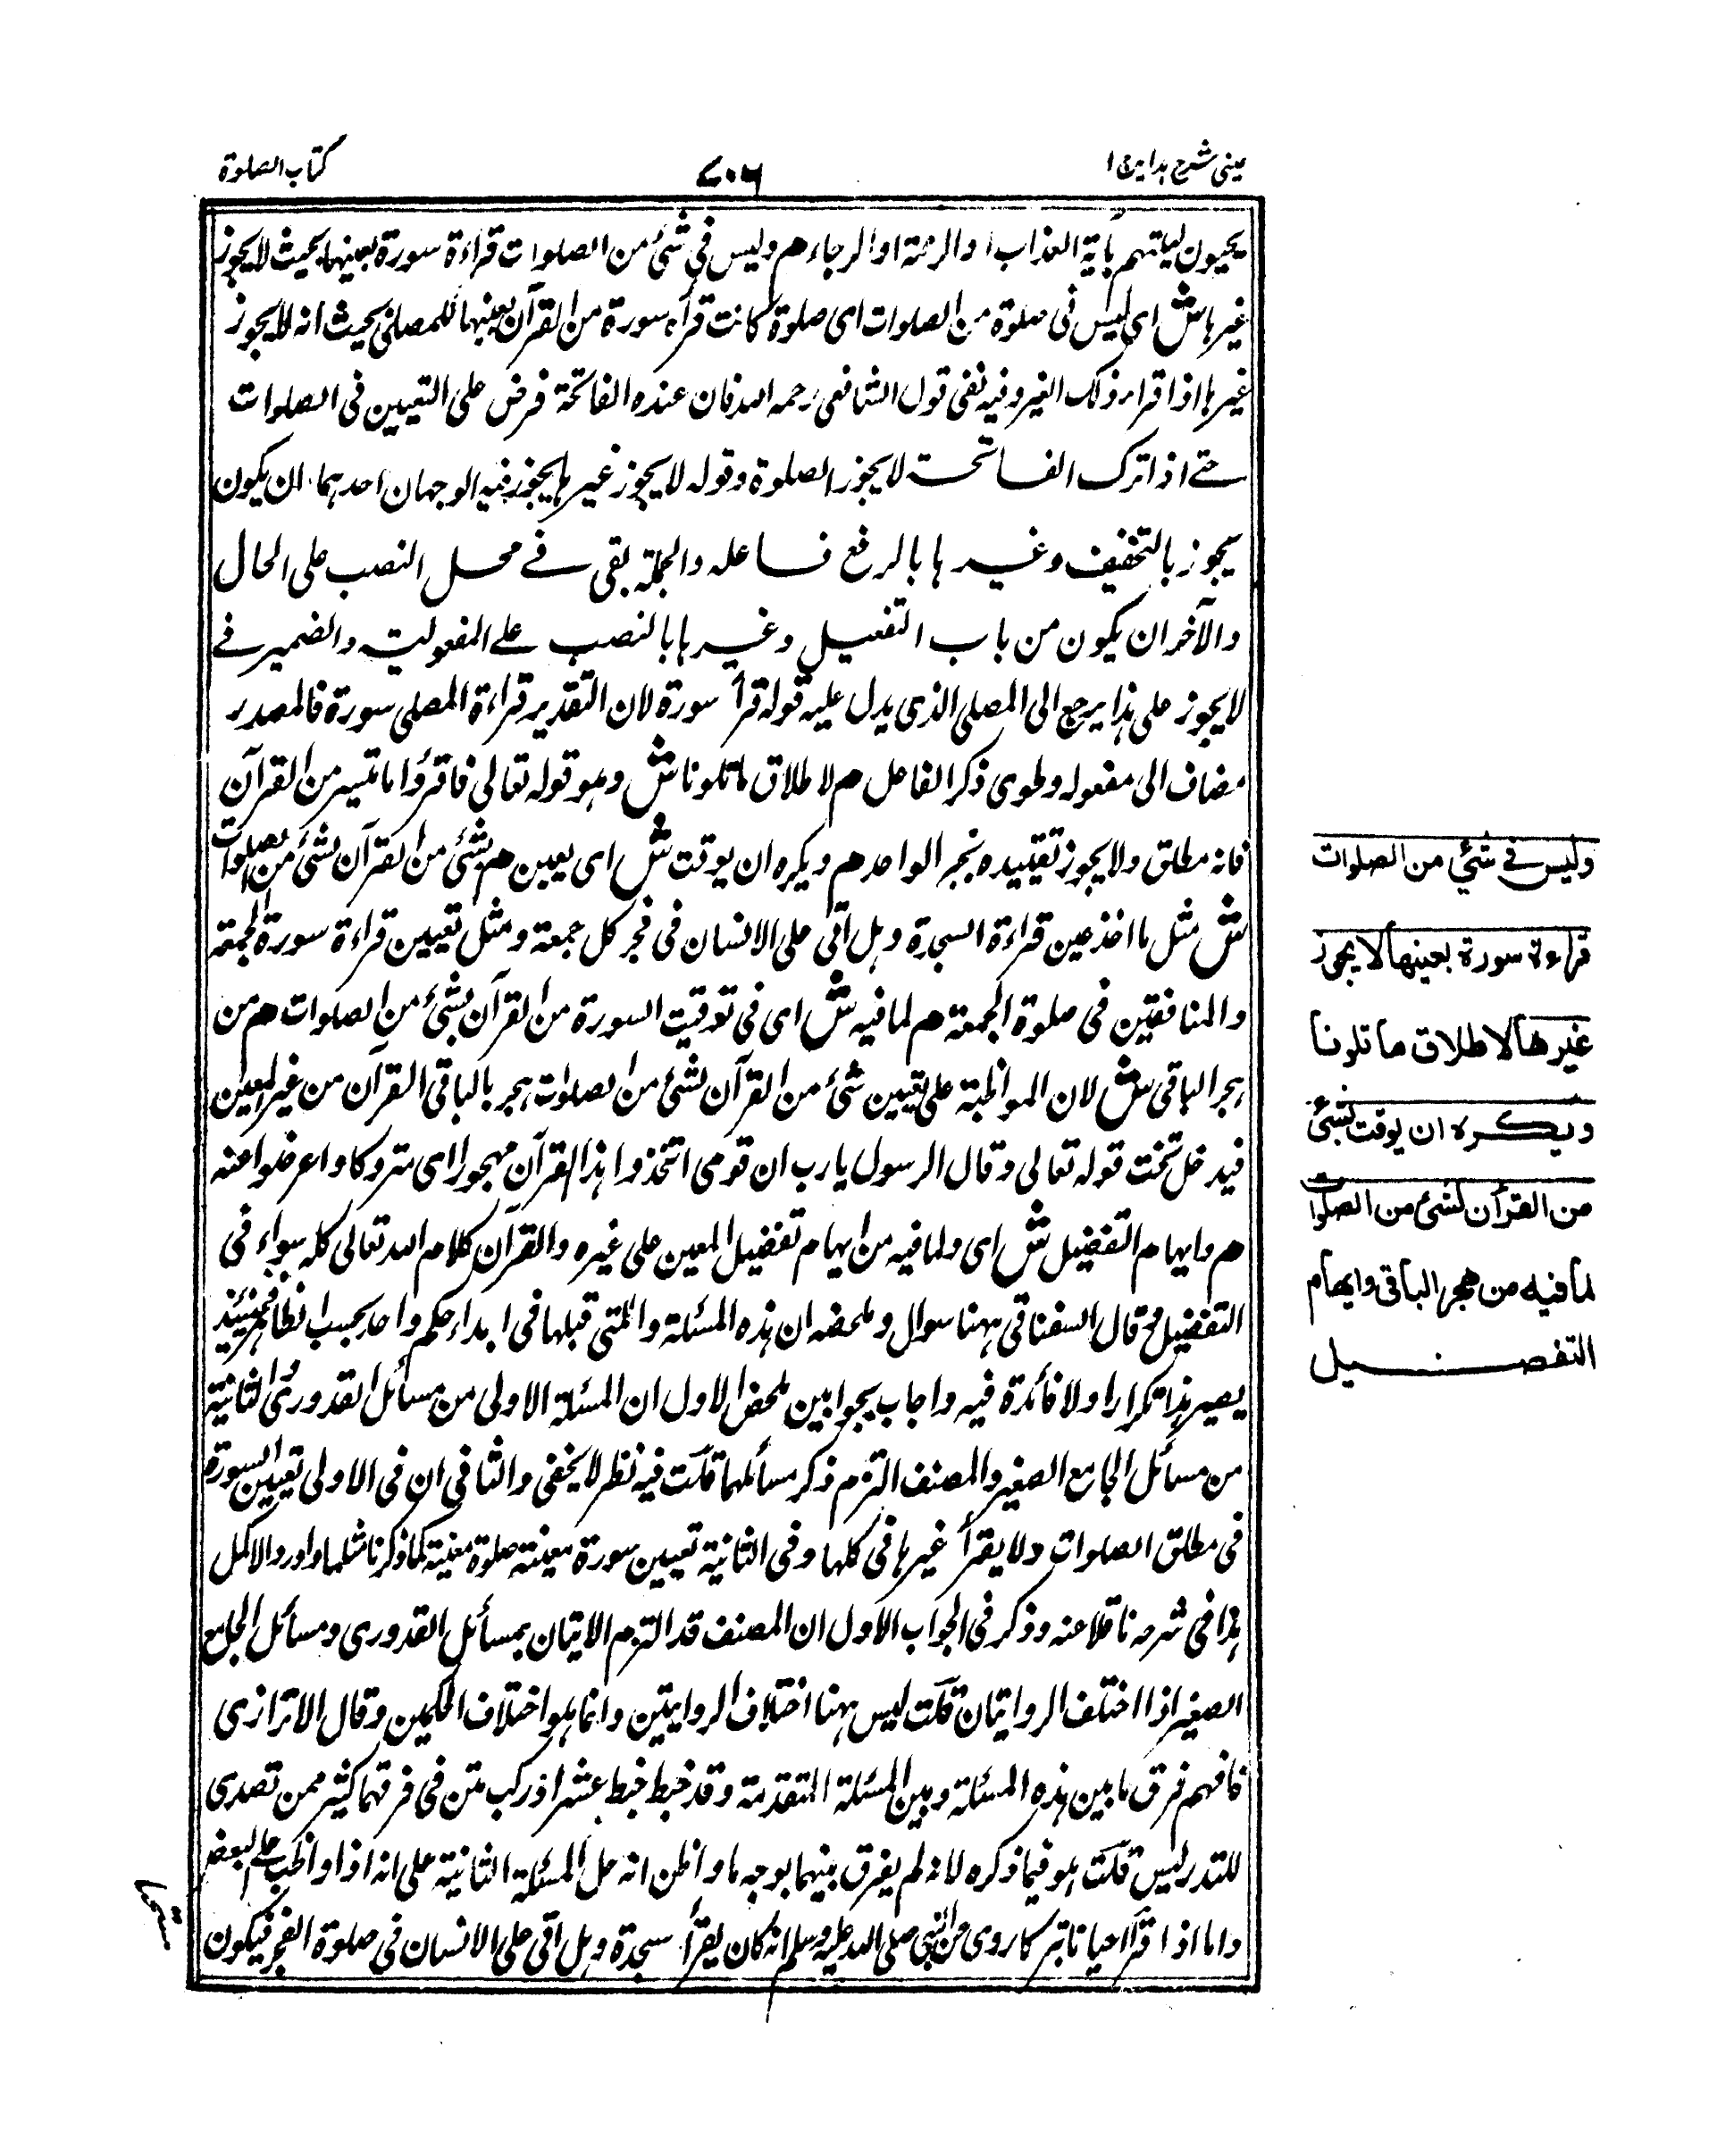 عینی شرح ہدایہ ج ۱
۷۰۶
کتاب الصلوة
یحیون لیلتہم بآیة العذاب او الرحمة او الرجاء ھم ولیس فی شئ من الصلوات قراءة سورة بعینہا بحیث لا یجوز
غیرہا ش ای لیس فی صلوة من الصلوات ای صلوة کانت قرآہ سورة من القرآن بعینہا للمصلی بحیث انہ لا یجوز
غیرہا اذا قراء ذلک الغیر وفیہ نفی قول الشافعی رحمہ اللہ فان عندہ الفاتحة فرض علی التعیین فی الصلوات
حتے اذا ترک الفاتحت لا یجوز الصلوة وقولہ لا یجوز غیرہا یجوز فیہ الوجہان احدہما ان یکون
یجوز بالتخفیف وغیرہا بالرفع فاعلہ والجملة بقی فے محل النصب علی الحال
والآخر ان یکون من باب التفعیل وغیرہا بالنصب علے المفعولیة والضمیر فے
لا یجوز علی ہذا یرجع الی المصلی الذی یدل علیہ قولہ قرأ سورة لان التقدیر قراءة المصلی سورة فالمصدر
مضاف الی مفعولہ وطوی ذکر الفاعل ھم لاطلاق ماتلونا ش وہو قولہ تعالی فاقرؤا ماتیسر من القرآن
فانہ مطلق ولا یجوز تقییدہ بخبر الواحد ھم ویکرہ ان یوقت ش ای یعین ھم بشئ من القرآن لشئ من الصلوات
ش مثل ما اخذ عین قراءة السجدة وہل اتی علی الانسان فی فجر کل جمعة ومثل تعیین قراءة سورة الجمعة
والمنافقین فی صلوة الجمعة ھم لما فیہ ش ای فی توقیت السورة من القرآن بشئ من الصلوات ھم من
ہجر الباقی ش لان المواظبة علی تعیین شئ من القرآن لشئ من الصلوات ہجر بالباقی القرآن من غیر المعین
فیدخل تحت قولہ تعالی وقال الرسول یا رب ان قومی اتخذوا ہذا القرآن مہجورا ای متروکا واعرضوا عنہ
ھم وایہام التفضیل ش ای ولما فیہ من ایہام تفضیل المعین علی غیرہ والقرآن کلام اللہ تعالی کلہ سواء فی
التفضیل قال السغناقی ہہنا سوال وملخصہ ان ہذہ المسئلة والتی قبلہا فی ابداء حکم واحد بحسب الظاہر فحینئذ
یصیر ہذا تکرارا ولا فائدة فیہ واجاب بجوابین ملخص الاول ان المسئلة الاولی من مسائل القدوری والثانیة
من مسائل الجامع الصغیر والمصنف التزم ذکر مسائلہما قلت فیہ نظر لا یخفی والثانی ان فی الاولی تعیین السورة
فی مطلق الصلوات ولا یقرأ غیرہا فی کلہا وفی الثانیة تعیین سورة معینة صلوة معینة کما ذکرنا مثلہما واورد الاکمل
ہذا فی شرحہ ناقلا عنہ وذکر فی الجواب الاول ان المصنف قد التزم الاتیان بمسائل القدوری ومسائل الجامع
الصغیر اذا اختلف الروایتان قلت لیس ہہنا اختلاف الروایتین وانما ہو اختلاف الحکمین وقال الاترازی
فافہم فرق مابین ہذہ المسئلة وبین المسئلة المتقدمة وقد خبط خبط عشوا ورکب متن فی فرقہما کثیر ممن تصدی
للتدریس قلت ہو فیما ذکرہ لانہ لم یفرق بینہما بوجہ ما واظن انہ حمل المسئلة الثانیة علی انہ اذا واظب علے البعض
واما اذا قرأ احیانا تبرکا روی عن النبی صلی اللہ علیہ وسلم انہ کان یقرأ سجدة وہل اتی علی الانسان فی صلوة الفجر فیکون
مستحبا
ولیس فے شئ من الصلوات
قراءة سورة بعینها لا یجوز
غیرها لاطلاق ما تلونا
ویکره ان یوقت بشئ
من القرآن لشئ من الصلوات
لما فیه من هجر الباقی وایهام
التفضیل